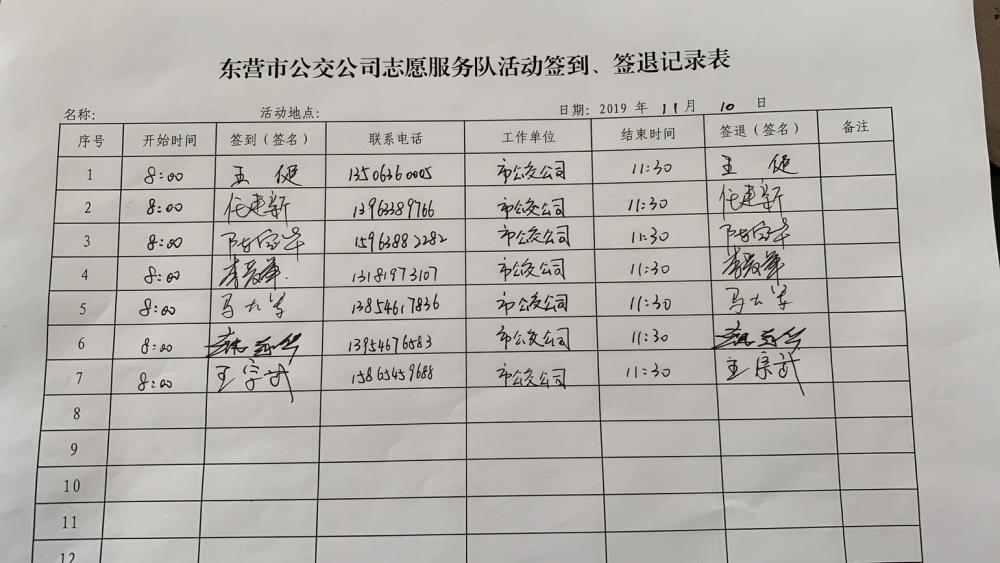 东营市公交公司志愿服务队活动签到、签退记录表
名称: 活动地点: 日期: 2019 年 11 月 10 日
序号 开始时间 签到（签名） 联系电话 工作单位 结束时间 签退（签名） 备注
1 8:00 王 13506360005 市公交公司 11:30 王
2 8:00 任建新 13963389766 市公交公司 11:30 任建新
3 8:00 15963882282 市公交公司 11:30
4 8:00 13181973107 市公交公司 11:30
5 8:00 马 13854617836 市公交公司 11:30 马
6 8:00 13954676583 市公交公司 11:30
7 8:00 王宗武 15865459688 市公交公司 11:30 王宗武
8
9
10
11
12